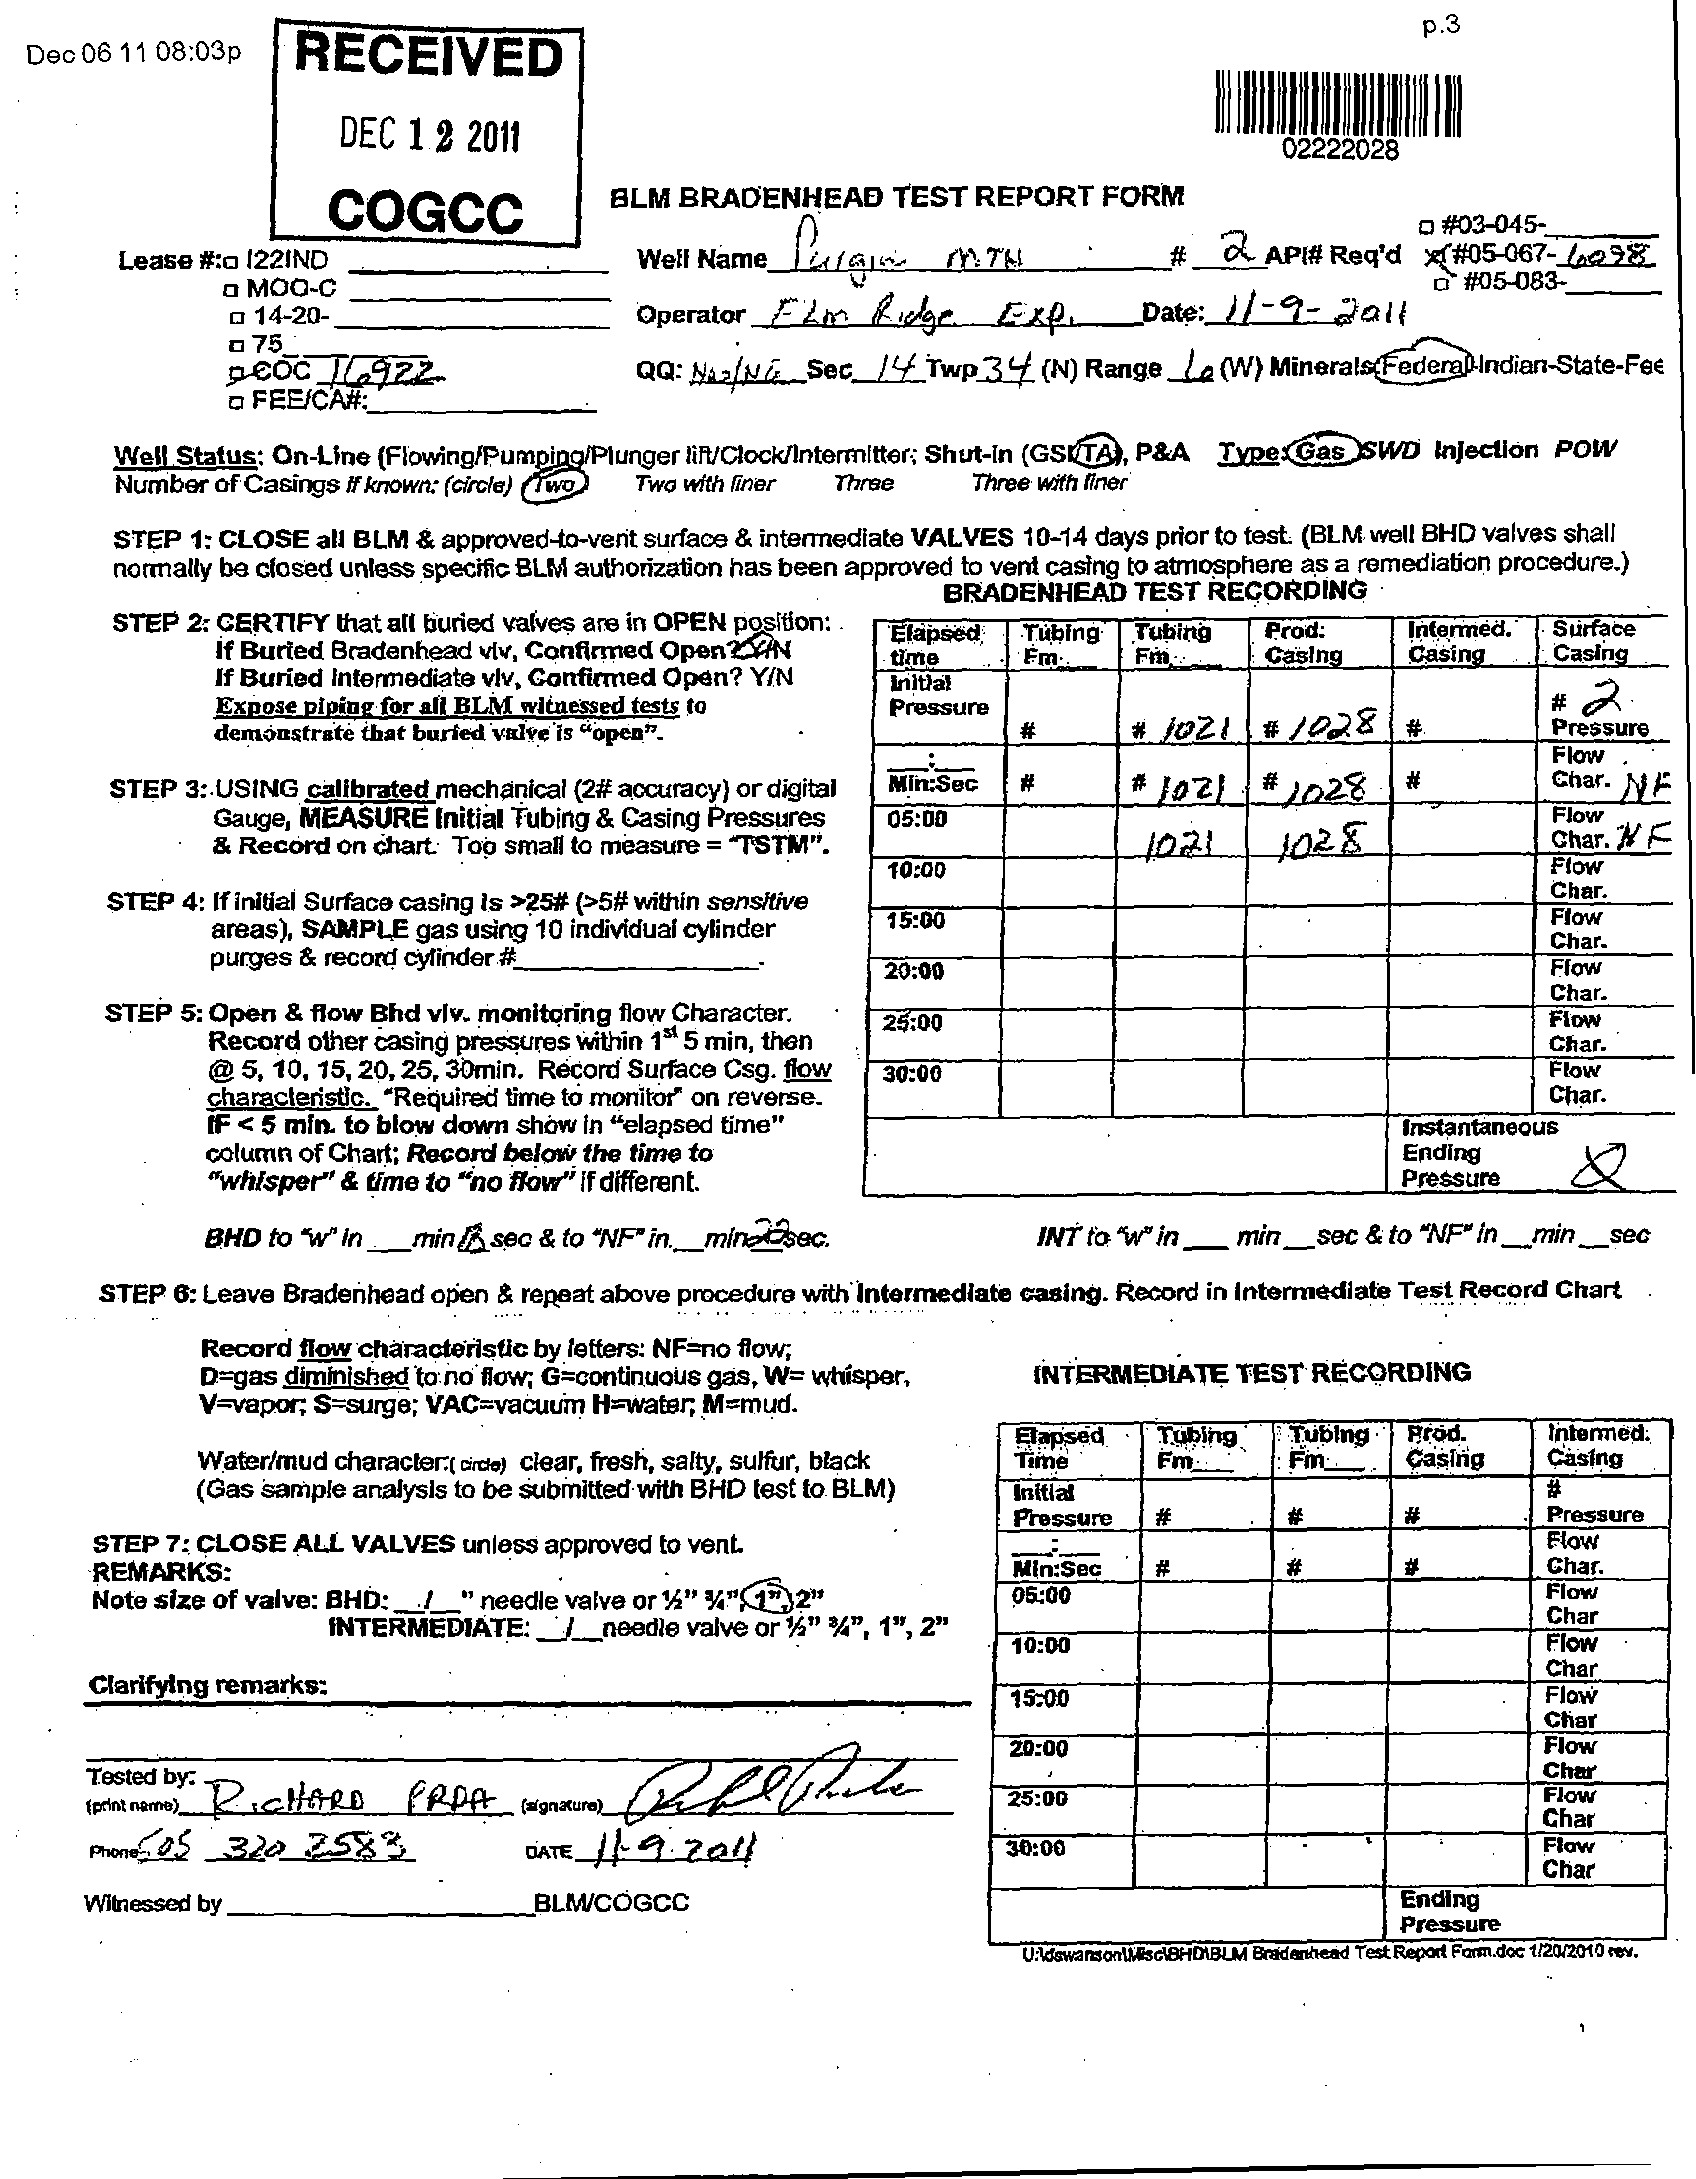 Dec 06 11 08:03p
p.3
RECEIVED
DEC 12 2011
COGCC
02222028
BLM BRADENHEAD TEST REPORT FORM
Lease #:□ I22IND
□ MOO-C
□ 14-20-
□ 75
□ COC 16922
□ FEE/CA#:
Well Name MTN # 2 API# Req'd
□ #03-045-
#05-067-6098
□ #05-083-
Operator Elm Ridge Exp. Date: 11-9-2011
QQ: Sec 14 Twp 34 (N) Range 6 (W) Minerals(Federal)-Indian-State-Fee
Well Status: On-Line (Flowing/Pumping/Plunger lift/Clock/Intermitter; Shut-In (GSI/TA), P&A Type: Gas SWD Injection POW
Number of Casings if known: (circle) Two Two with liner Three Three with liner
STEP 1: CLOSE all BLM & approved-to-vent surface & intermediate VALVES 10-14 days prior to test. (BLM well BHD valves shall
normally be closed unless specific BLM authorization has been approved to vent casing to atmosphere as a remediation procedure.)
STEP 2: CERTIFY that all buried valves are in OPEN position:
If Buried Bradenhead vlv, Confirmed Open? Y/N
If Buried Intermediate vlv, Confirmed Open? Y/N
Expose piping for all BLM witnessed tests to
demonstrate that buried valve is "open".
STEP 3: USING calibrated mechanical (2# accuracy) or digital
Gauge, MEASURE Initial Tubing & Casing Pressures
& Record on chart. Too small to measure = "TSTM".
STEP 4: If initial Surface casing is >25# (>5# within sensitive
areas), SAMPLE gas using 10 individual cylinder
purges & record cylinder #
STEP 5: Open & flow Bhd vlv. monitoring flow Character.
Record other casing pressures within 1st 5 min, then
@ 5, 10, 15, 20, 25, 30min. Record Surface Csg. flow
characteristic. "Required time to monitor" on reverse.
IF < 5 min. to blow down show in "elapsed time"
column of Chart; Record below the time to
"whisper" & time to "no flow" if different.
BRADENHEAD TEST RECORDING
Elapsed time Tubing Fm. Tubing Fm. Prod. Casing Intermed. Casing Surface Casing
Initial Pressure # # 1021 # 1028 # # 2 Pressure
__:__ Min:Sec # # 1021 # 1028 # Flow Char. NF
05:00 1021 1028 Flow Char. NF
10:00 Flow Char.
15:00 Flow Char.
20:00 Flow Char.
25:00 Flow Char.
30:00 Flow Char.
Instantaneous Ending Pressure
BHD to "w" in ___min sec & to "NF" in ___min 22 sec.
INT to "w" in ___ min __sec & to "NF" in __min __sec
STEP 6: Leave Bradenhead open & repeat above procedure with Intermediate casing. Record in Intermediate Test Record Chart
Record flow characteristic by letters: NF=no flow;
D=gas diminished to no flow; G=continuous gas, W= whisper,
V=vapor; S=surge; VAC=vacuum H=water; M=mud.
Water/mud character:( circle) clear, fresh, salty, sulfur, black
(Gas sample analysis to be submitted with BHD test to BLM)
STEP 7: CLOSE ALL VALVES unless approved to vent.
REMARKS:
Note size of valve: BHD: __/__" needle valve or ½" ¾", 1", 2"
INTERMEDIATE: __/__needle valve or ½" ¾", 1", 2"
Clarifying remarks:
Tested by:
(print name) RICHARD (signature)
Phone 505 320 2583 DATE 11-9-2011
Witnessed by BLM/COGCC
INTERMEDIATE TEST RECORDING
Elapsed Time Tubing Fm Tubing Fm Prod. Casing Intermed. Casing
Initial Pressure # # # # Pressure
__:__ Min:Sec # # # Flow Char.
05:00 Flow Char
10:00 Flow Char
15:00 Flow Char
20:00 Flow Char
25:00 Flow Char
30:00 Flow Char
Ending Pressure
U:\dswanson\Misc\BHD\BLM Bradenhead Test Report Form.doc 1/20/2010 rev.